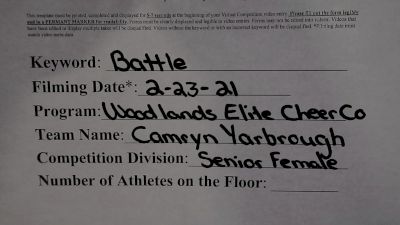 This template must be printed, completed and displayed for 5-7 seconds at the beginning of your Virtual Competition video entry. Please fill out the form legibly
and in a PERMANT MARKER for readability. Forms must be clearly displayed and legible to video entries. Forms may not be edited into videos. Videos that
have been edited to display multiple takes will be disqualified. Videos without the keyword or with an incorrect keyword will be disqualified. *Filming date must
match video meta data
Keyword: Battle
Filming Date*: 2-23-21
Program: Woodlands Elite Cheer Co
Team Name: Camryn Yarbrough
Competition Division: Senior Female
Number of Athletes on the Floor: